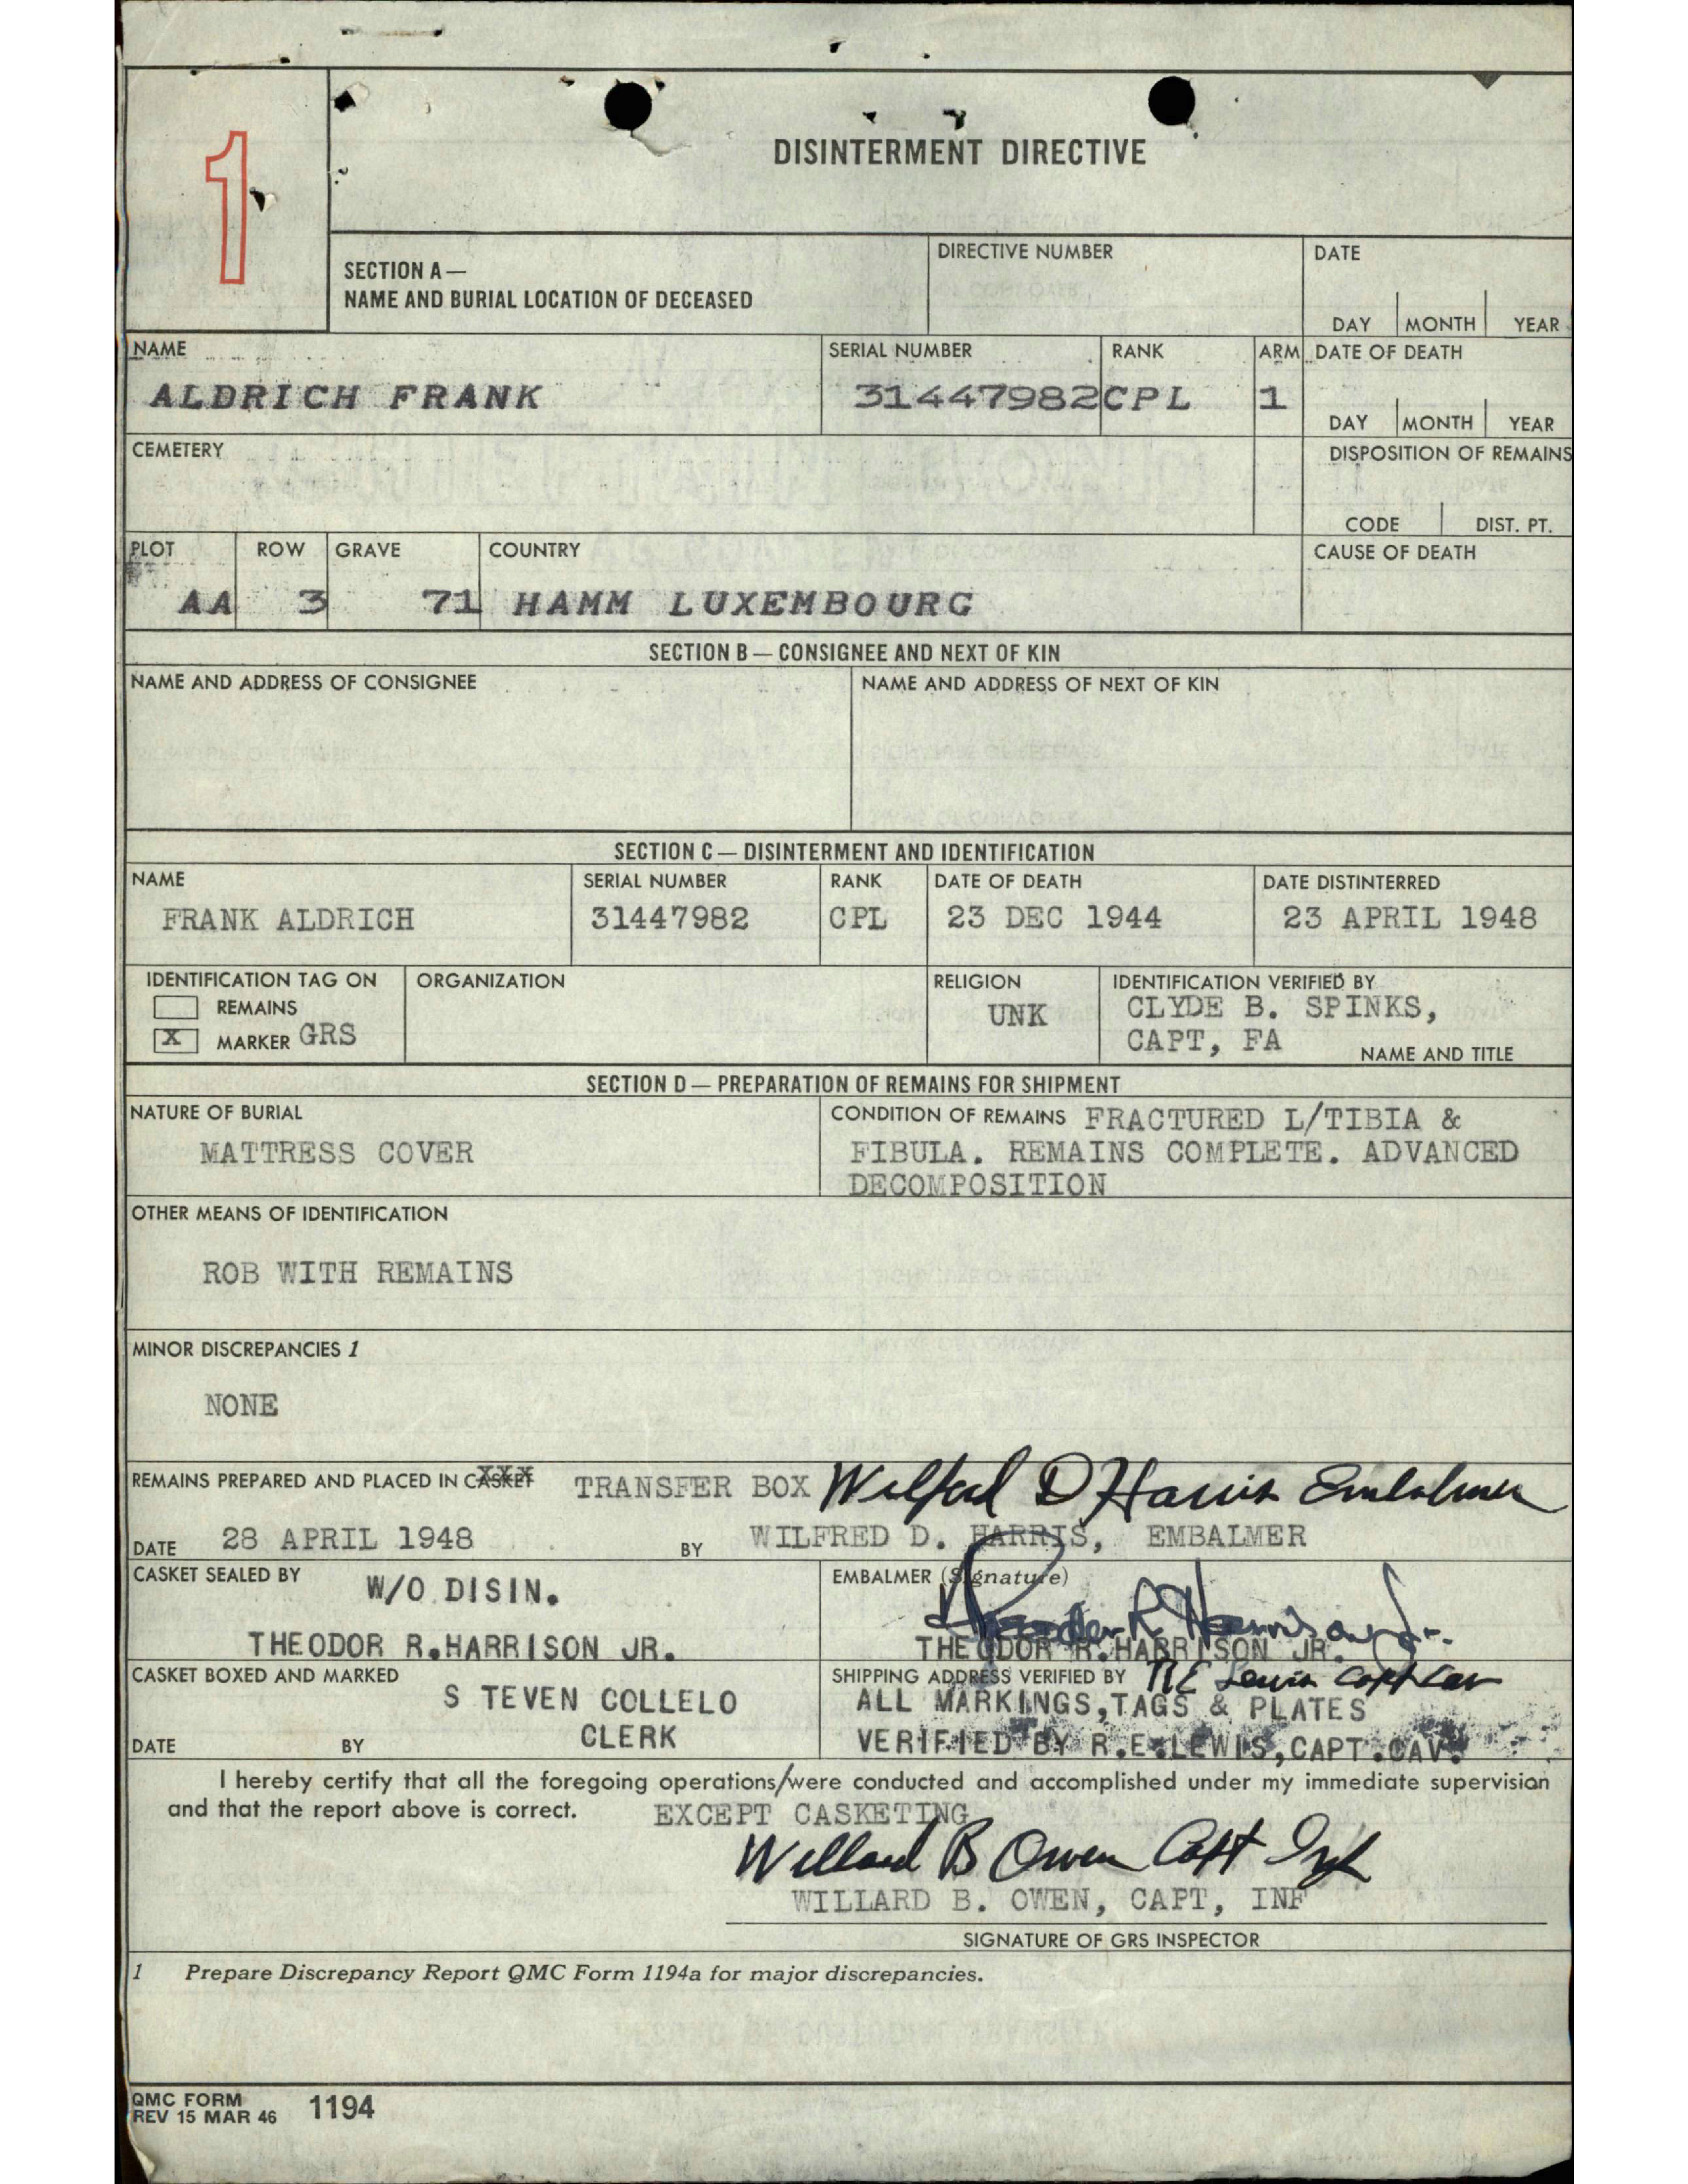 1
DISINTERMENT DIRECTIVE
SECTION A—
NAME AND BURIAL LOCATION OF DECEASED
DIRECTIVE NUMBER
DATE
DAY MONTH YEAR
NAME
ALDRICH FRANK
SERIAL NUMBER
31447982
RANK
CPL
ARM
1
DATE OF DEATH
DAY MONTH YEAR
CEMETERY
DISPOSITION OF REMAINS
CODE DIST. PT.
PLOT
AA
ROW
3
GRAVE
71
COUNTRY
HAMM LUXEMBOURG
CAUSE OF DEATH
SECTION B — CONSIGNEE AND NEXT OF KIN
NAME AND ADDRESS OF CONSIGNEE
NAME AND ADDRESS OF NEXT OF KIN
SECTION C — DISINTERMENT AND IDENTIFICATION
NAME
FRANK ALDRICH
SERIAL NUMBER
31447982
RANK
CPL
DATE OF DEATH
23 DEC 1944
DATE DISTINTERRED
23 APRIL 1948
IDENTIFICATION TAG ON
REMAINS
X MARKER GRS
ORGANIZATION
RELIGION
UNK
IDENTIFICATION VERIFIED BY
CLYDE B. SPINKS,
CAPT, FA
NAME AND TITLE
SECTION D — PREPARATION OF REMAINS FOR SHIPMENT
NATURE OF BURIAL
MATTRESS COVER
CONDITION OF REMAINS FRACTURED L/TIBIA &
FIBULA. REMAINS COMPLETE. ADVANCED
DECOMPOSITION
OTHER MEANS OF IDENTIFICATION
ROB WITH REMAINS
MINOR DISCREPANCIES 1
NONE
REMAINS PREPARED AND PLACED IN CASKET TRANSFER BOX Wilfred D Harris Embalmer
DATE 28 APRIL 1948 BY WILFRED D. HARRIS, EMBALMER
CASKET SEALED BY
W/O DISIN.
THEODOR R.HARRISON JR.
EMBALMER (Signature)
Theodor R Harrison Jr.
THEODOR R.HARRISON JR.
CASKET BOXED AND MARKED
S TEVEN COLLELO
CLERK
DATE BY
SHIPPING ADDRESS VERIFIED BY RE Lewis Capt Cav
ALL MARKINGS,TAGS & PLATES
VERIFIED BY R.E.LEWIS,CAPT.CAV.
I hereby certify that all the foregoing operations/were conducted and accomplished under my immediate supervision
and that the report above is correct. EXCEPT CASKETING
Willard B Owen Capt Inf
WILLARD B. OWEN, CAPT, INF
SIGNATURE OF GRS INSPECTOR
1 Prepare Discrepancy Report QMC Form 1194a for major discrepancies.
QMC FORM
REV 15 MAR 46 1194